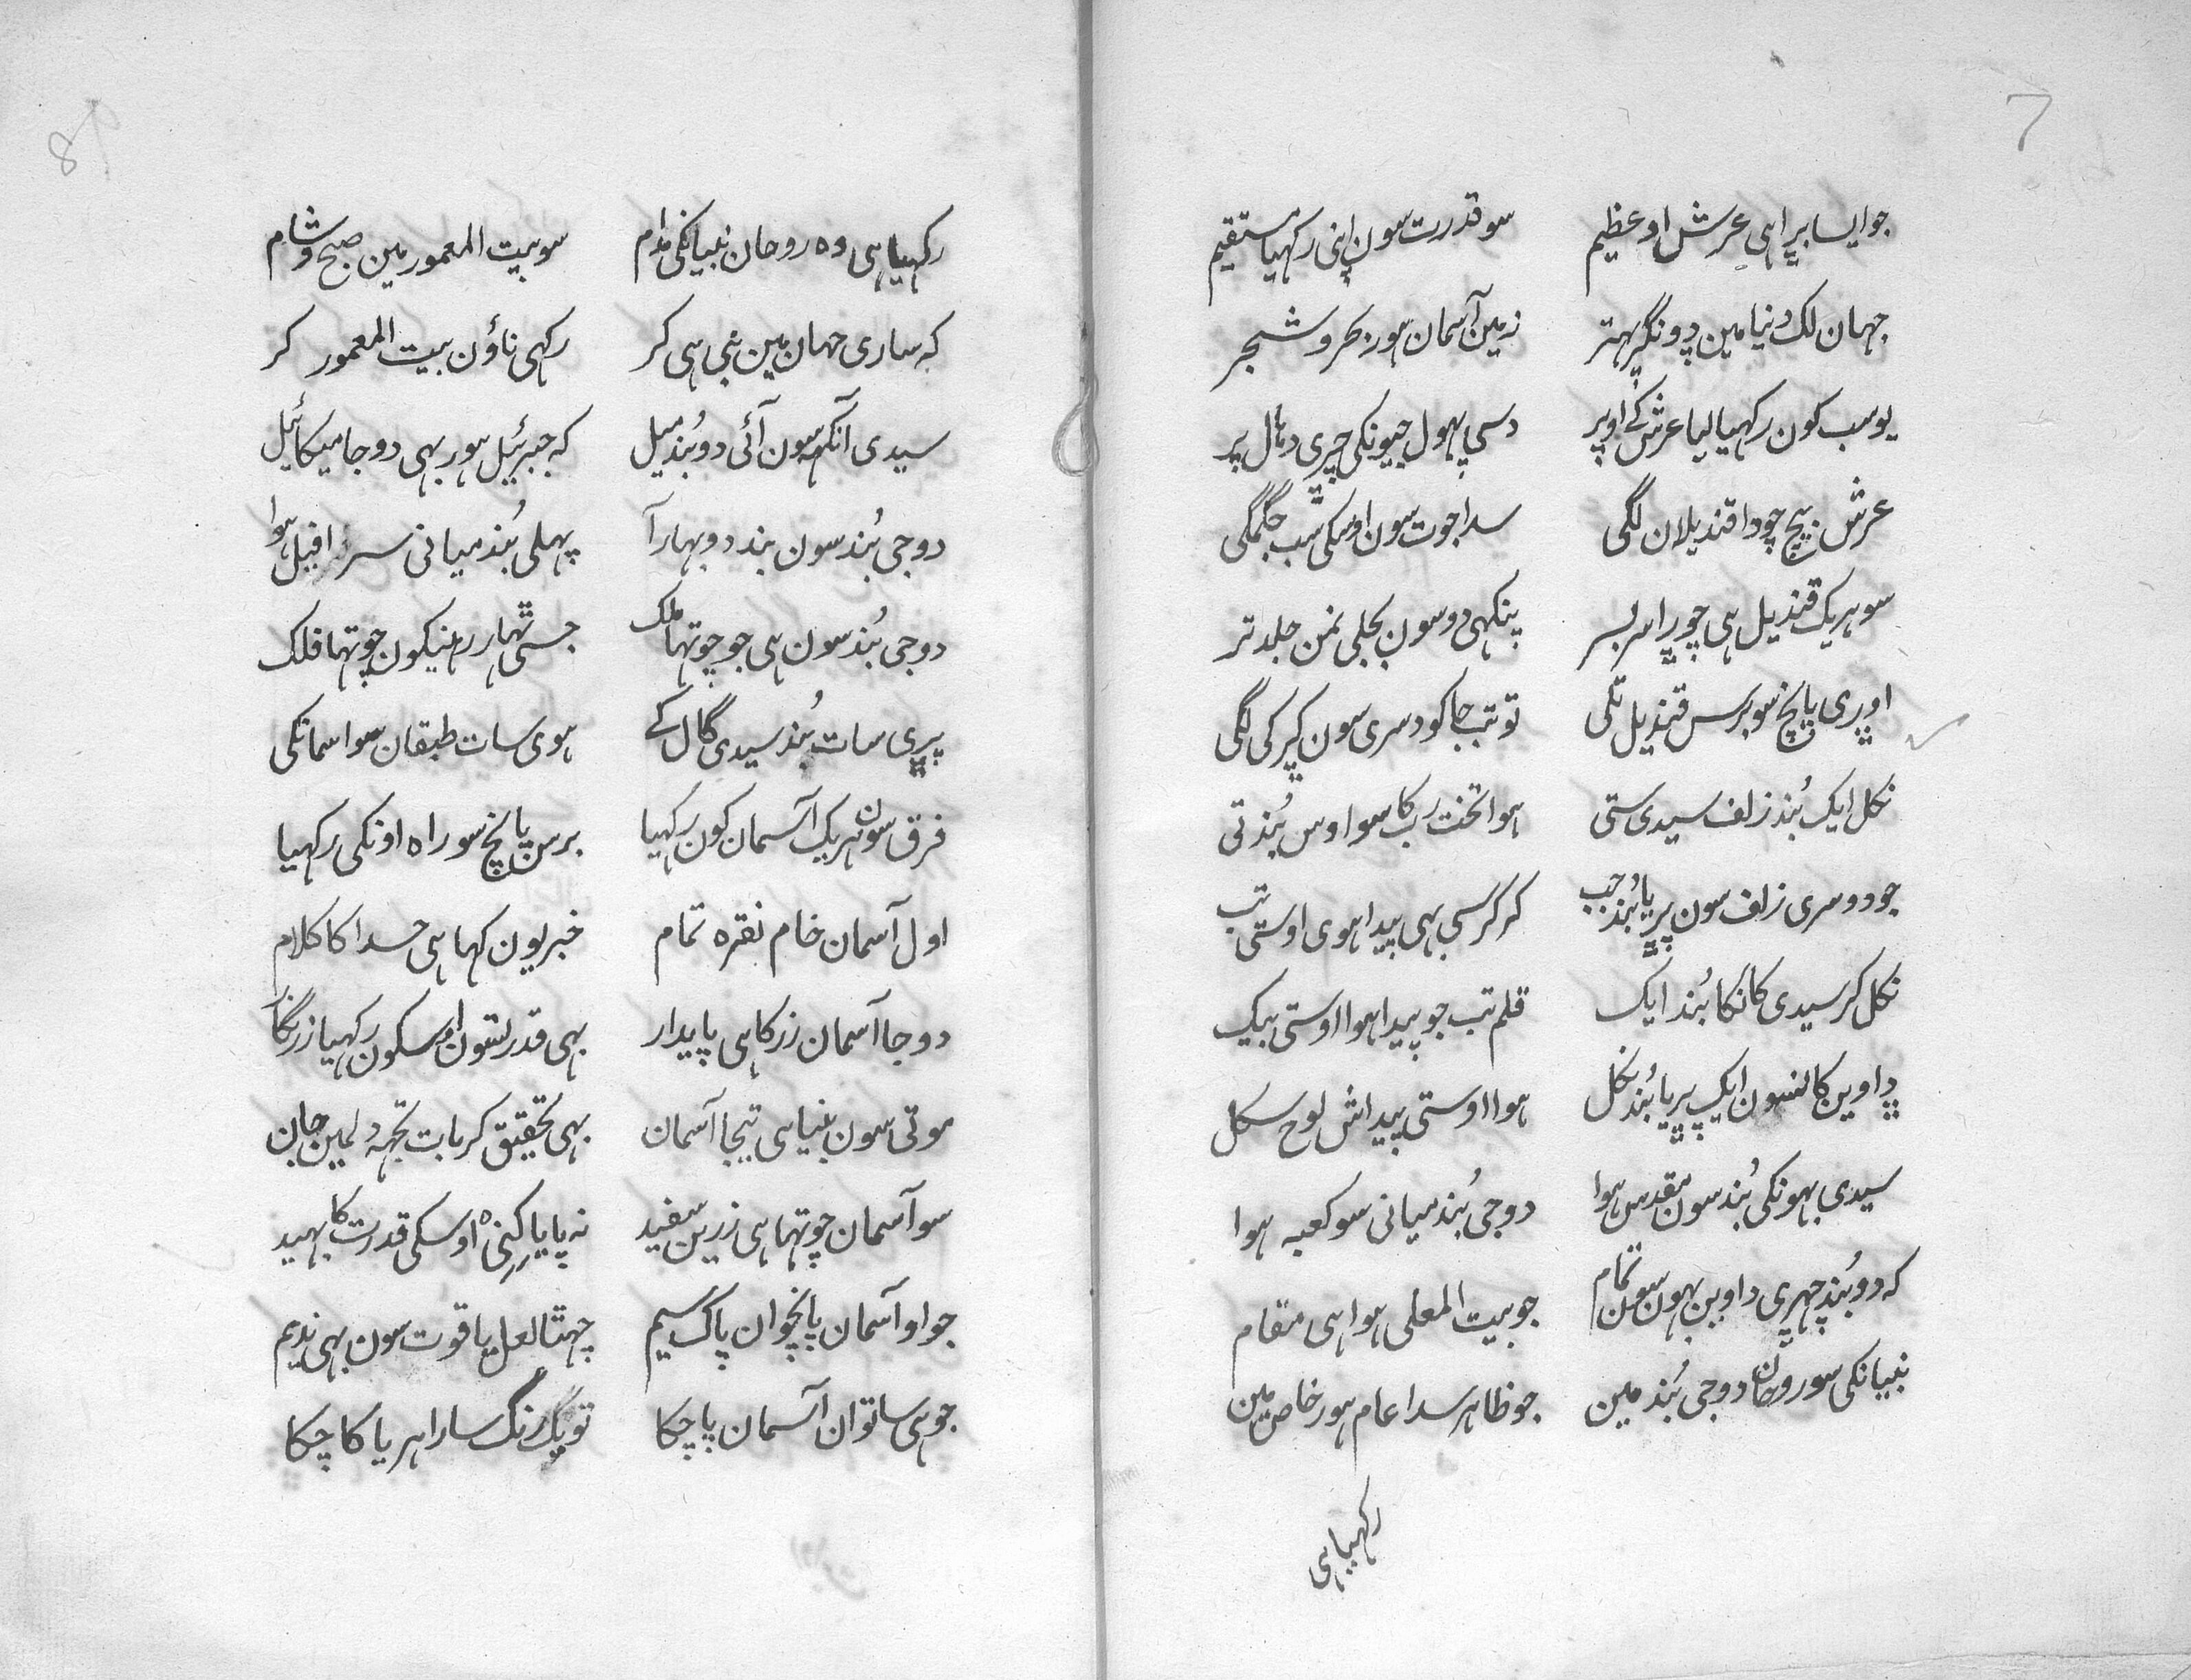 7
جو ایسا برا ہی عرش او عظیم سو قدرت سون اپنی رکہیا مستقیم
جہان لک دنیا مین ڈونگر پہتر زمین آسمان ہور بحر و شجر
یو سب کون رکہیا لیا عرش کے اوپر دسی پہول جیونکی چری دہال پر
عرش بیچ چودا قندیلان لگی سدا جوت سون اوسکی شب جگمگی
سو ہریک قندیل ہی چوڑا سربسر پنکہی دو سون بجلی نمن جلد تر
اوڑی پانچ سو برس قندیل تکی تو تب جا کو دسری سون کی لگی
نکل ایک بُند زلف سیدی ستی ہوا تخت رب کا سو اوس بُند تی
جو دوسری زلف سون پڑیا بُند جب کر کرسی بہی پیدا ہوی اوستی تب
نکل کر سیدی کانکا بُند ایک قلم تب جو پیدا ہوا اوستی بیک
ڈاوین کانسون ایک پڑیا بُند نکل ہوا اوستی پیدایش لوح سکل
سیدی بہونکی بُند سون مقدس ہوا دوجی بُند میانی سو کعبہ ہوا
کہ دو بُند چہڑی داوین بہون سون تمام جو بیت المعلی ہوا ہی مقام
نبیانکی سو روحان دوجی بُند مین جو ظاہر سدا عام ہور خاص مین
رکہیا ہی
8
رکہیا ہی وہ روحان نبیانکی مدام سو بیت المعمور مین صبح و شام
کہ ساری جہان مین نبی ہی کر رکہی ناؤن بیت المعمور کر
سیدی آنکہہ سون آئی دو بُند میل کہ جبرئیل ہور بہی دوجا میکائیل
دوجی بُند سون بند دو بہار آ پہلی بُند میانی سرافیل ہوا
دوجی بُند سون ہی جو چوتہا ملک جسی ٹہار رہنیکون چوتہا فلک
پڑی سات بُند سیدی گال کے ہوی سات طبقان سو اسمانکی
فرق سون ہریک آسمان کون رکہیا برس پانچ سو راہ اونکی رکہیا
اول آسمان خام نقرہ تمام خبر یون کہا ہی خدا کا کلام
دوجا آسمان زر کا ہی پایدار بہی قدرتسون اوسکون رکہیا زرنگار
موتی سون بنیا ہی تیجا آسمان بہی تحقیق کر بات تجہہ دلمین جان
سو آسمان چوتہا ہی زرین سفید نہ پایا کِنی اوسکی قدرت کا بہید
جو او آسمان پانچوان پاک سیم چہتا لعل یاقوت سون بہی ندیم
جو ہی ساتوان آسمان پاچکا تو یک رنگ سارا ہریا کاچکا